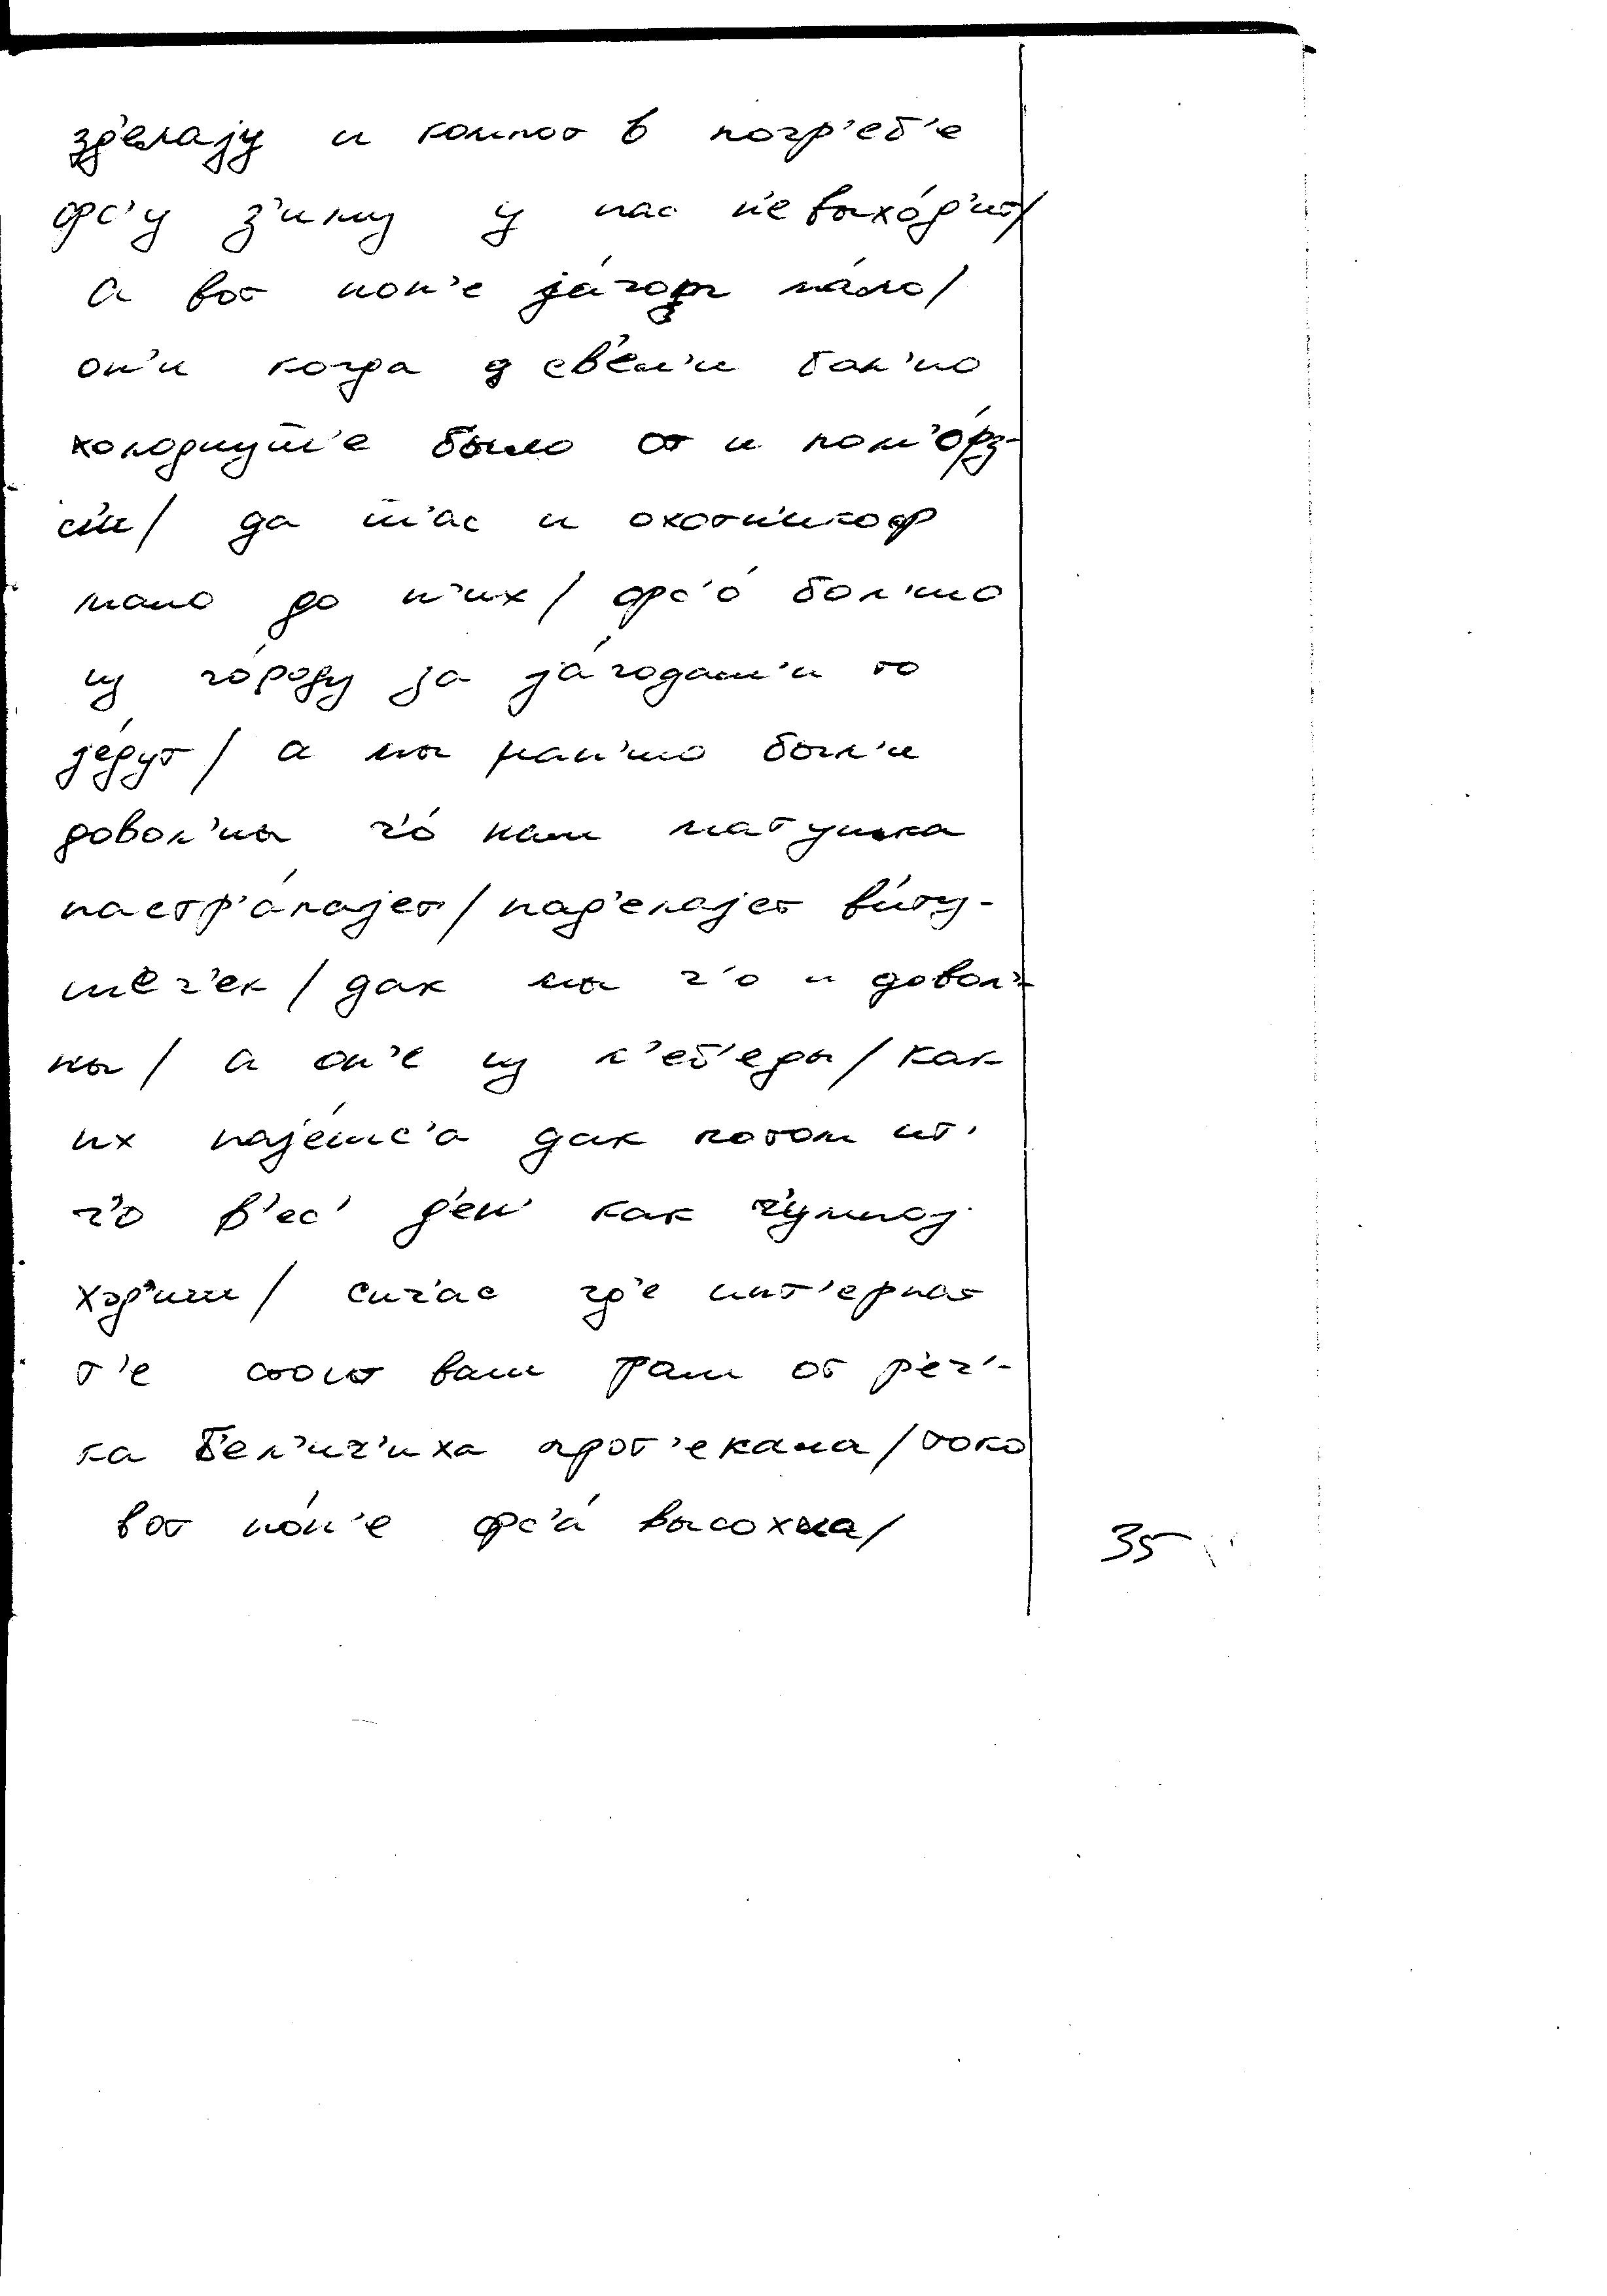 зд'елаjу и компот в погр'еб'е
фс'у з'иму у нас н'е выхо́д'ит/
а вот нон'е jа́годы ма́ло/
он'и когда цв'ел'и бол'но
холоднушш'е было от и пом'о́рз-
си/ да ш'ас и охотн'икоф
мало до н'их/ фс'о́ бол'шо
из го́роду за jа́годам'и то
jе́дут/ а мы ран'шо был'и
довол'ны ч'о́ нам матушка
настр'а́паjет/ над'елаjет в'иту-
шеч'ек/ дак мы ч'о и довол'-
ны/ а он'е из л'еб'еды/ как
их наjе́шс'а дак потом н'и-
ч'о в'ес' д'ен' как ч'умноj
ход'иш/ сич'ас гд'е инт'ернат
т'е стоит ваш там от р'еч'-
ка Бел'ич'иха прот'екала/ токо
вот но́н'е фс'а́ высохла/
35